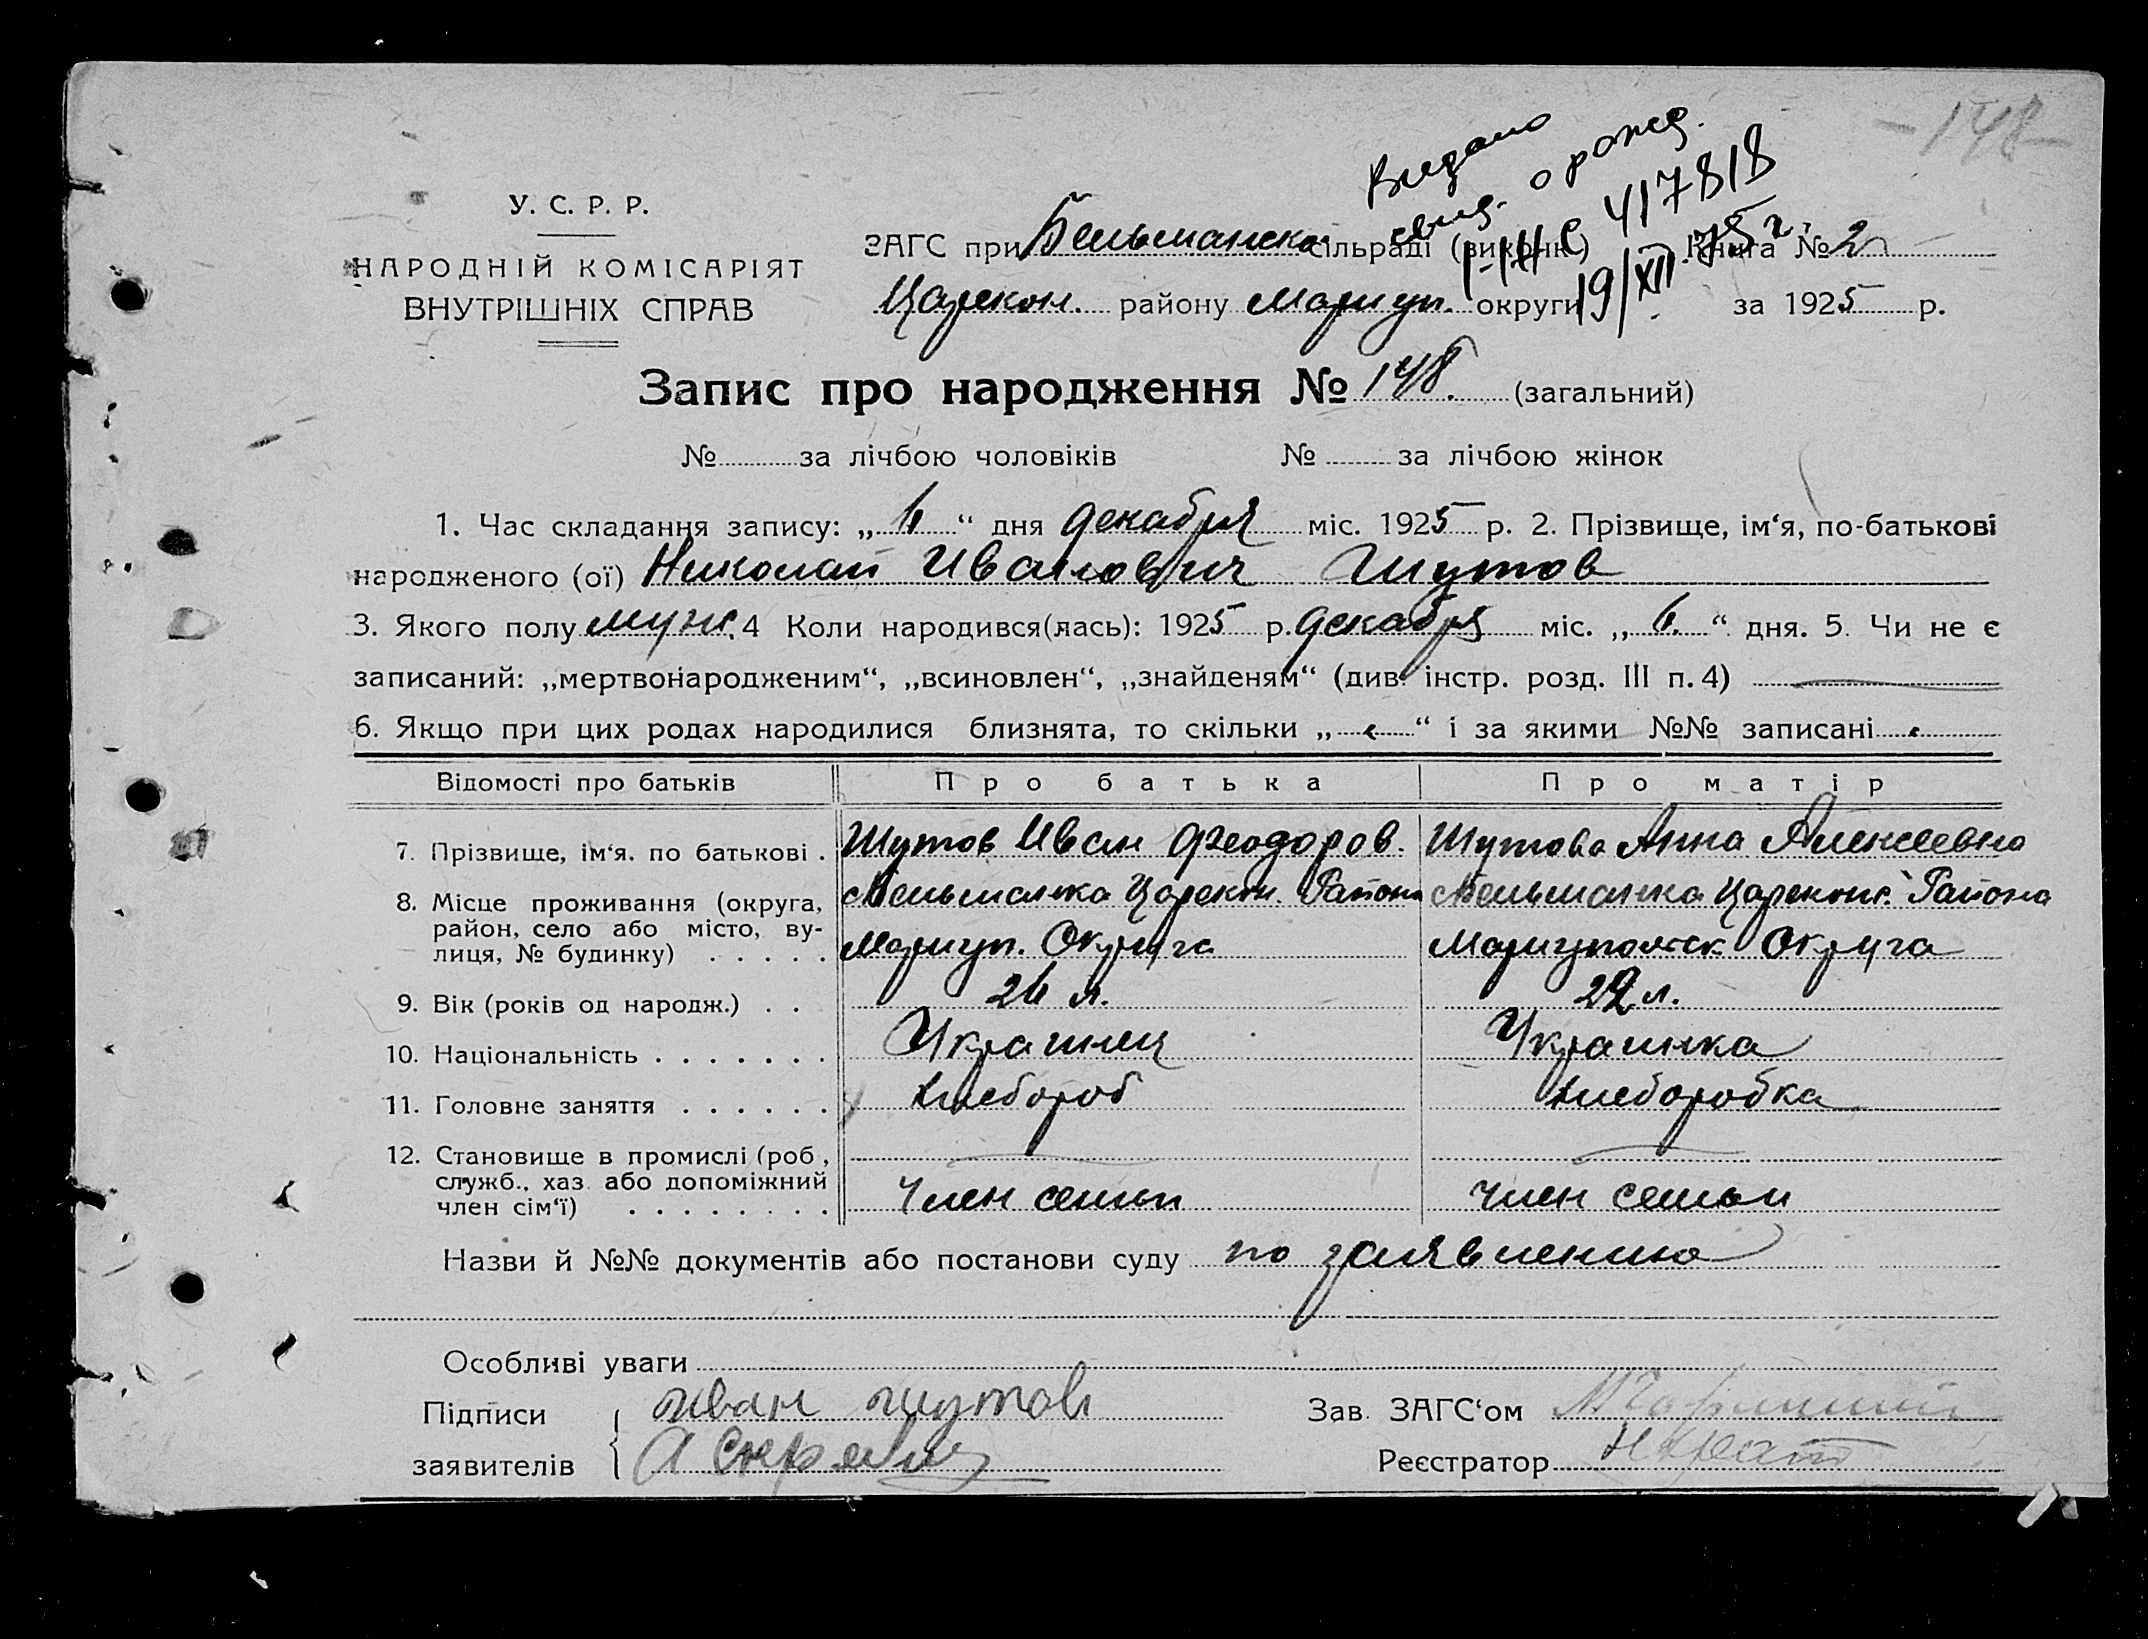 -148-
Выдано
свид. о рожд.
I-ЖС 417818
19/XII 75 г.
У. С. Р. Р.
НАРОДНІЙ КОМІСАРІЯТ
ВНУТРІШНІХ СПРАВ
ЗАГС при Бельманско сільраді (виконк.) Книга № 2
Царекон. району Мариуп. округи за 1925 р.
Запис про народження № 148. (загальний)
№ за лічбою чоловіків № за лічбою жінок
1. Час складання запису: „6“ дня декабря міс. 1925 р. 2. Прізвище, ім‘я, по-батькові
народженого (ої) Николай Иванович Шутов
3. Якого полу муж. 4 Коли народився(лась): 1925 р. декабря міс. „6.“ дня. 5. Чи не є
записаний: „мертвонародженим“, „всиновлен“, „знайденям“ (див. інстр. розд. III п. 4)
6. Якщо при цих родах народилися близнята, то скільки „ “ і за якими №№ записані
Відомості про батьків Про батька Про матір
7. Прізвище, ім‘я. по батькові . Шутов Иван Феодоров. Шутова Анна Алексеевна
8. Місце проживання (округа, Бельманка Царекон. Района Бельманка Цареконс. Района
район, село або місто, ву-
лиця, № будинку) . . . . . Мариуп. Округа Мариупольск Округа
9. Вік (років од народж.) . . 26 л. 22 л.
10. Національність . . . . . . . Украинец Украинка
11. Головне заняття . . . . . . Хлебороб Хлеборобка
12. Становище в промислі (роб.,
служб., хаз. або допоміжний
член сім‘ї) . . . . . . . . Член семьи Член семьи
Назви й №№ документів або постанови суду по заявлению
Особливі уваги
Підписи Иван Шутов Зав. ЗАГС‘ом
заявителів А Реєстратор